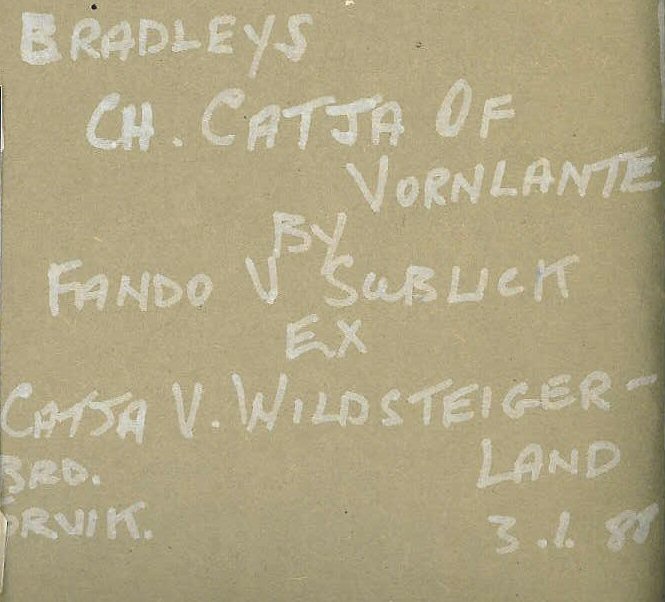 BRADLEYS
CH. CATJA OF
VORNLANTE
BY
FANDO V SUBLICK
EX
CATJA V. WILDSTEIGER-
LAND
3RD.
ORVIK.
3.1.88